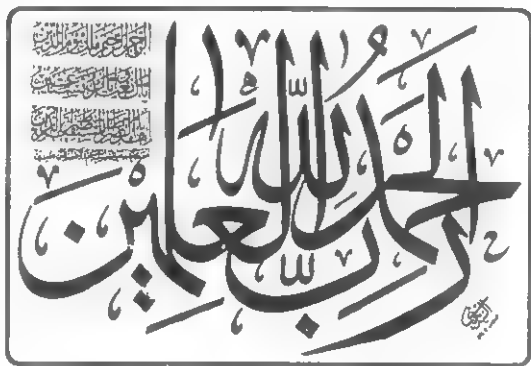 الحمد لله رب العلمين
الرحمن الرحيم ملك يوم الدين
إياك نعبد وإياك نستعين
اهدنا الصراط المستقيم صراط الذين